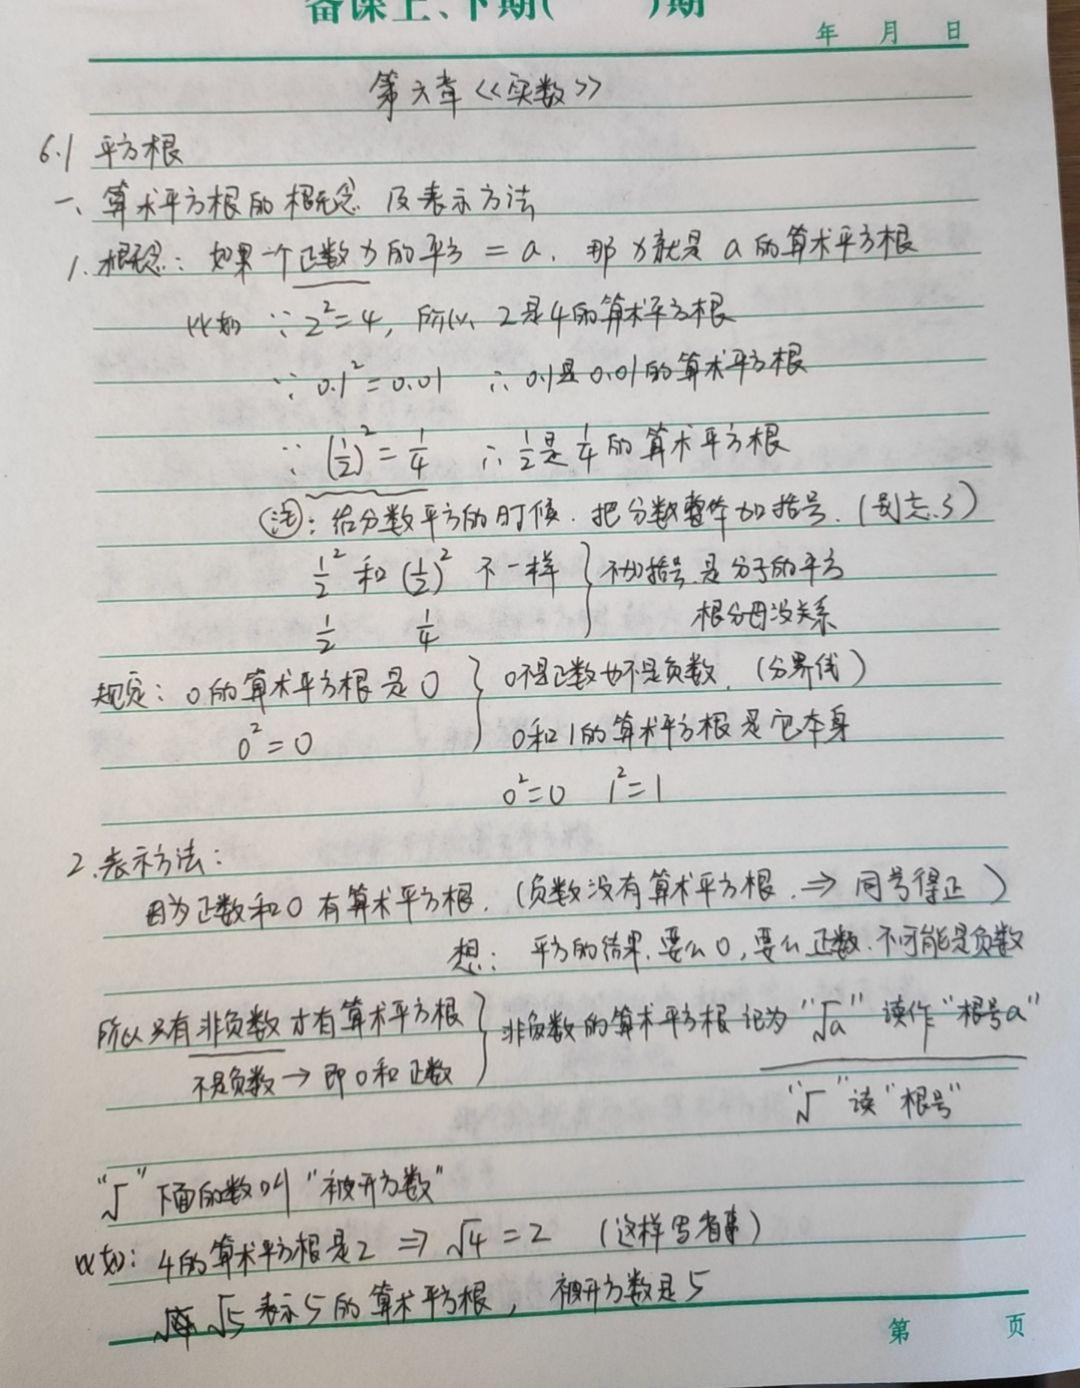 备课上、下期( )期
年 月 日
第六章《实数》
6.1 平方根
一、算术平方根的概念 及表示方法
1.概念：如果一个正数x的平方=a，那x就是a的算术平方根
比如 ∵2²=4，所以2是4的算术平方根
∵0.1²=0.01 ∴0.1是0.01的算术平方根
∵(1/2)²=1/4 ∴1/2是1/4的算术平方根
注：给分数平方的时候，把分数整体加括号，(别忘了)
1²/2 和 (1/2)² 不一样 } 不加括号，是分子的平方
1/2 1/4 根分母没关系
规定：0的算术平方根是0 } 0不是正数也不是负数，(分界线)
0²=0 0和1的算术平方根是它本身
0²=0 1²=1
2.表示方法：
因为正数和0有算术平方根，(负数没有算术平方根，⇒同号得正)
想：平方的结果，要么0，要么正数，不可能是负数
所以只有非负数才有算术平方根 } 非负数的算术平方根记为“√a” 读作“根号a”
不是负数→即0和正数
“√”读“根号”
“√”下面的数叫“被开方数”
比如：4的算术平方根是2 ⇒ √4=2 (这样写省事)
√5表示5的算术平方根，被开方数是5
第 页